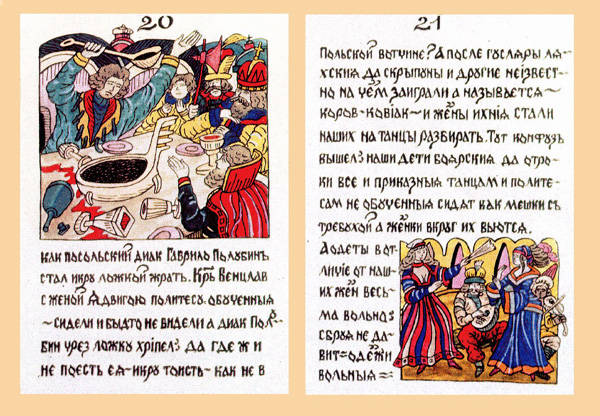 20
как посольский диак Гаврило Полубинъ
стал икру ложкой жрать. Крль Венцлав
с женой Ядвигою политесу обученныя
~ сидели и быдто не видели а диак Полу-
бин чрез ложку хрiпел: да где ж и
не поесть ея ~ икру тоисть ~ как не в
21
Польской вотчине? А после гусляры ля-
хския да скрыпуны и другие неiзвест-
но на чём заиграли а называется ~
коров-ковiак ~ и жёны ихнiя стали
наших на танцы разбирать. Тут конфузъ
вышел: наши дети боярския да отро-
ки все и приказныя танцам и полите-
сам не обученныя сидят как мешки с
требухой а жёнки вкруг их вьются.
А одеты в от-
личiе от наш-
их жён весь-
ма вольно:
сбруя не да-
вит = одёжи
вольныя =